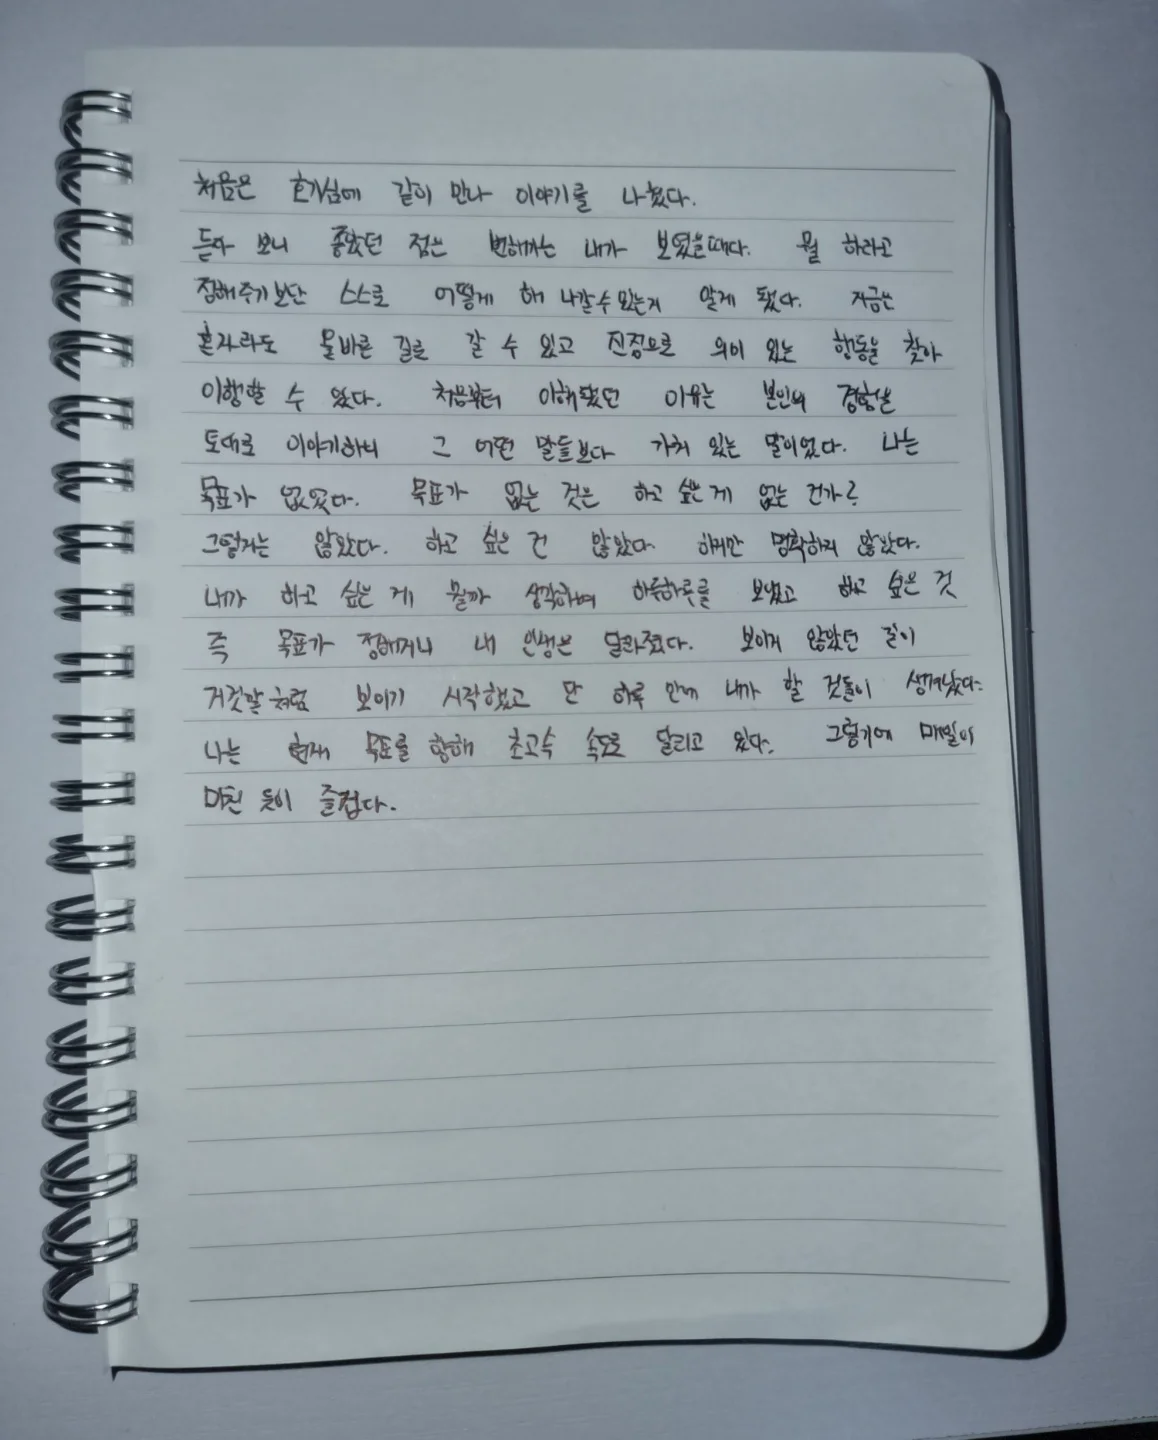 처음은 호기심에 같이 만나 이야기를 나눴다.
듣다 보니 좋았던 점은 변해가는 내가 보였을때다. 뭘 하라고
정해주기 보단 스스로 어떻게 해 나갈 수 있는지 알게 됐다. 지금은
혼자라도 올바른 길로 갈 수 있고 진정으로 의미 있는 행동을 찾아
이행할 수 있다. 처음부터 이해됐던 이유는 본인의 경험을
토대로 이야기하니 그 어떤 말들보다 가치 있는 말이었다. 나는
목표가 없었다. 목표가 없는 것은 하고 싶은 게 없는 건가?
그렇지는 않았다. 하고 싶은 건 많았다 하지만 명확하지 않았다.
내가 하고 싶은 게 뭘까 생각하며 하루하루를 보냈고 하고 싶은 것
즉 목표가 정해지니 내 인생은 달라졌다. 보이지 않았던 길이
거짓말처럼 보이기 시작했고 단 하루 만에 내가 할 것들이 생겨났다.
나는 현재 목표를 향해 초고속 속도로 달리고 있다. 그렇기에 매일이
미친 듯이 즐겁다.